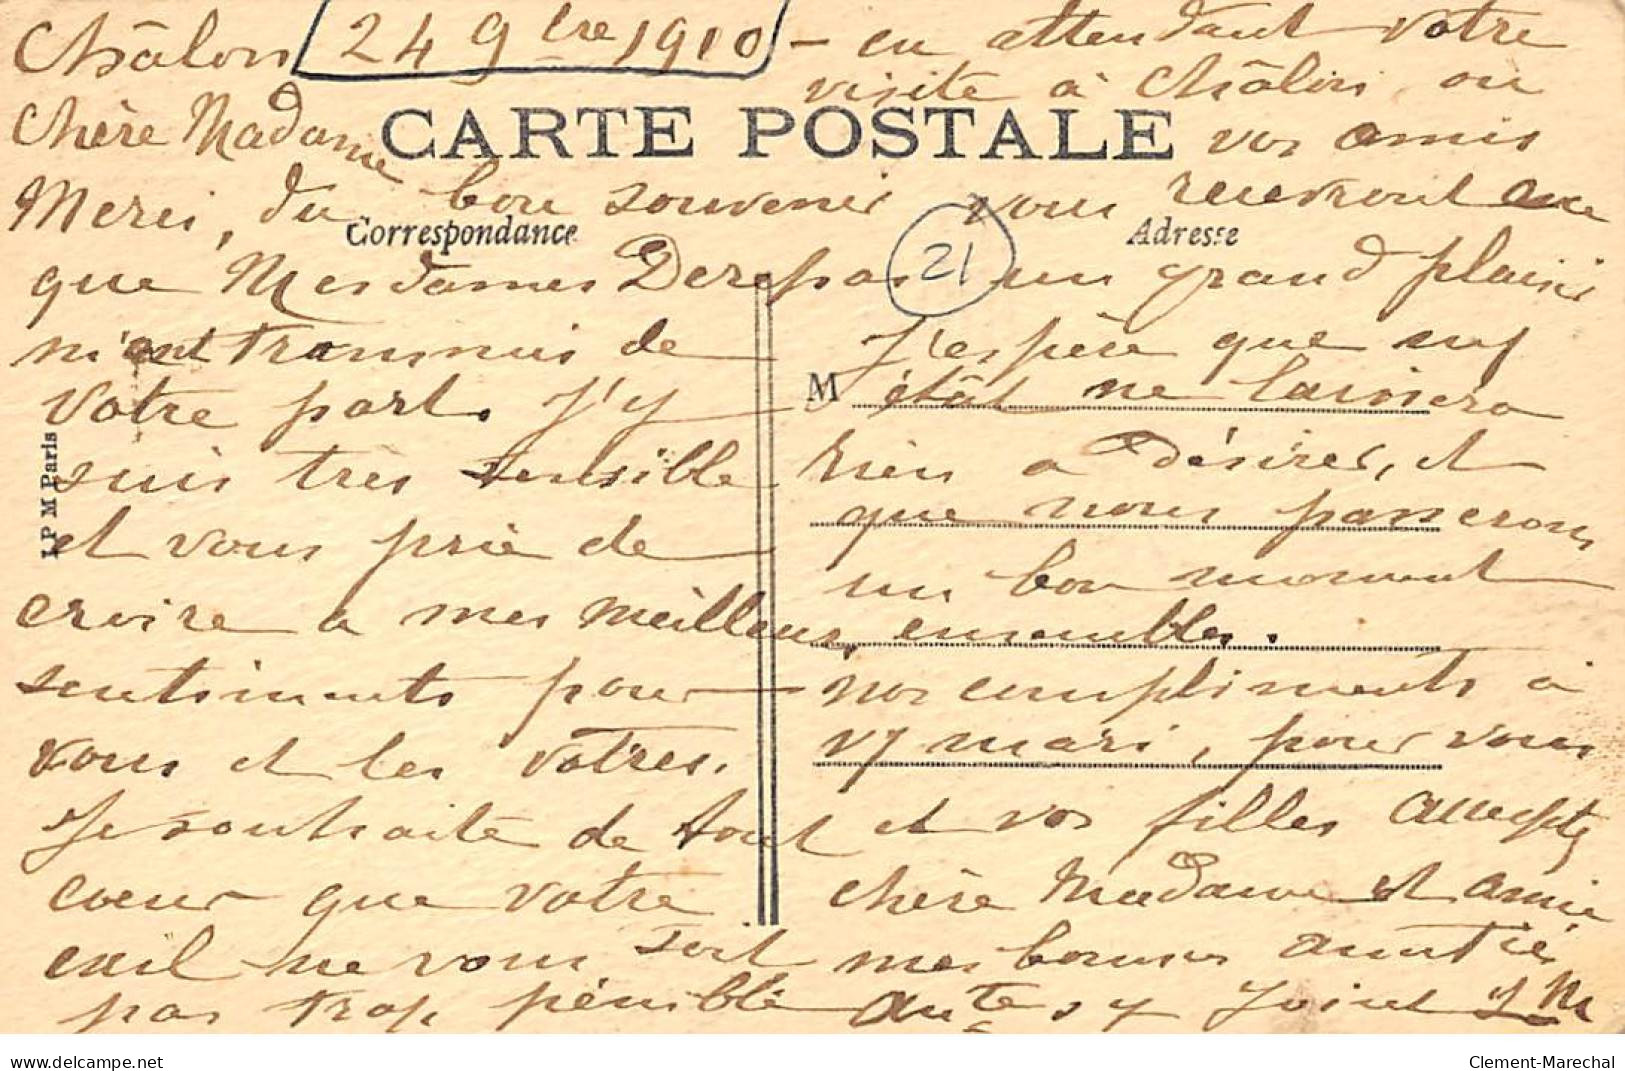 Châlon 24 9bre 1910
Chère Madame
CARTE POSTALE
Merci, du bon souvenir
Correspondance
que Mesdames Derepas
m'ont transmis de
votre part. J'y
suis très sensible
et vous prie de
croire a mes meilleurs
sentiments pour
vous et les vôtres.
Je souhaite de tout
coeur que votre
exil ne vous soit
pas trop pénible
I P M Paris
– en attendant votre
visite à Châlon, où
vos amis
vous recevront avec
Adresse
21
un grand plaisir
J'espère que
M
état ne laissera
rien a désirer, et
que nous passerons
un bon moment
ensembles.
nos compliments à
mari, pour vous
et vos filles acceptez
chère Madame et amie
mes bonnes amitiés
y joint
www.delcampe.net
Clement-Marechal